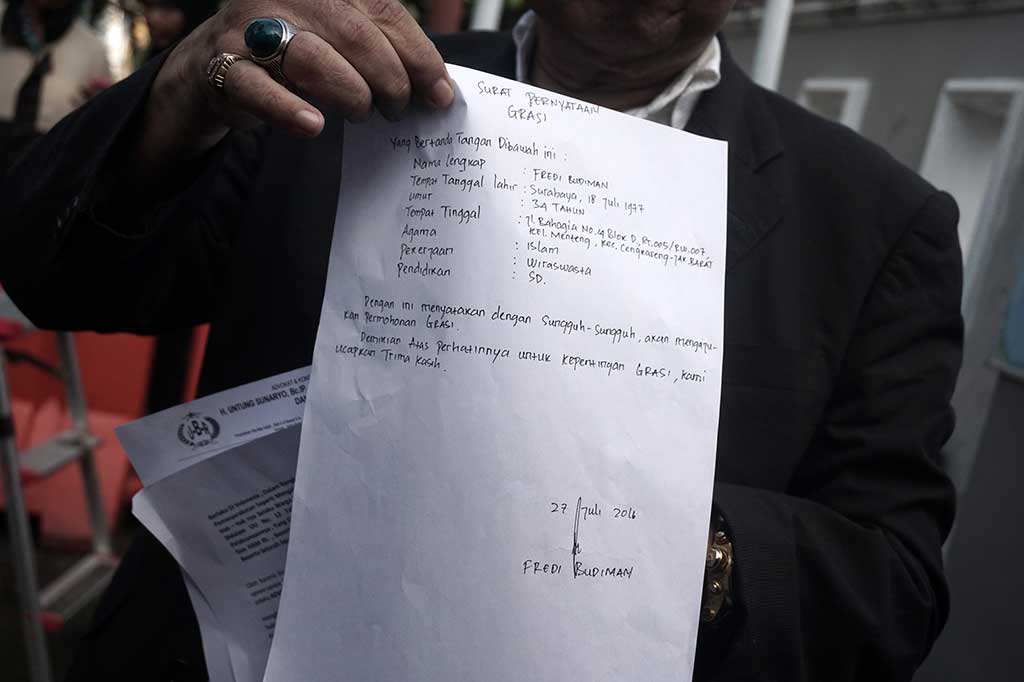 SURAT PERNYATAAN
GRASI
Yang Bertanda Tangan Dibawah ini :
Nama Lengkap : FREDI BUDIMAN
Tempat Tanggal lahir : Surabaya, 18 Juli 1977
umur : 34 TAHUN
Tempat Tinggal : Jl. Bahagia No.19 Blok D, RT.005/RW.007,
KEL Menteng, Kec. Cengkareng - JAK BARAT
Agama : Islam
Pekerjaan : Wiraswasta
Pendidikan : SD.
Dengan ini menyatakan dengan Sungguh-Sungguh, akan mengaju-
kan Permohonan GRASI.
Demikian Atas perhatinnya untuk kepentingan GRASI, kami
ucapkan Trima Kasih.
27 Juli 2016
FREDI BUDIMAN
ADVOKAT &
H. UNTUNG SUNARYO, Bc.IP,